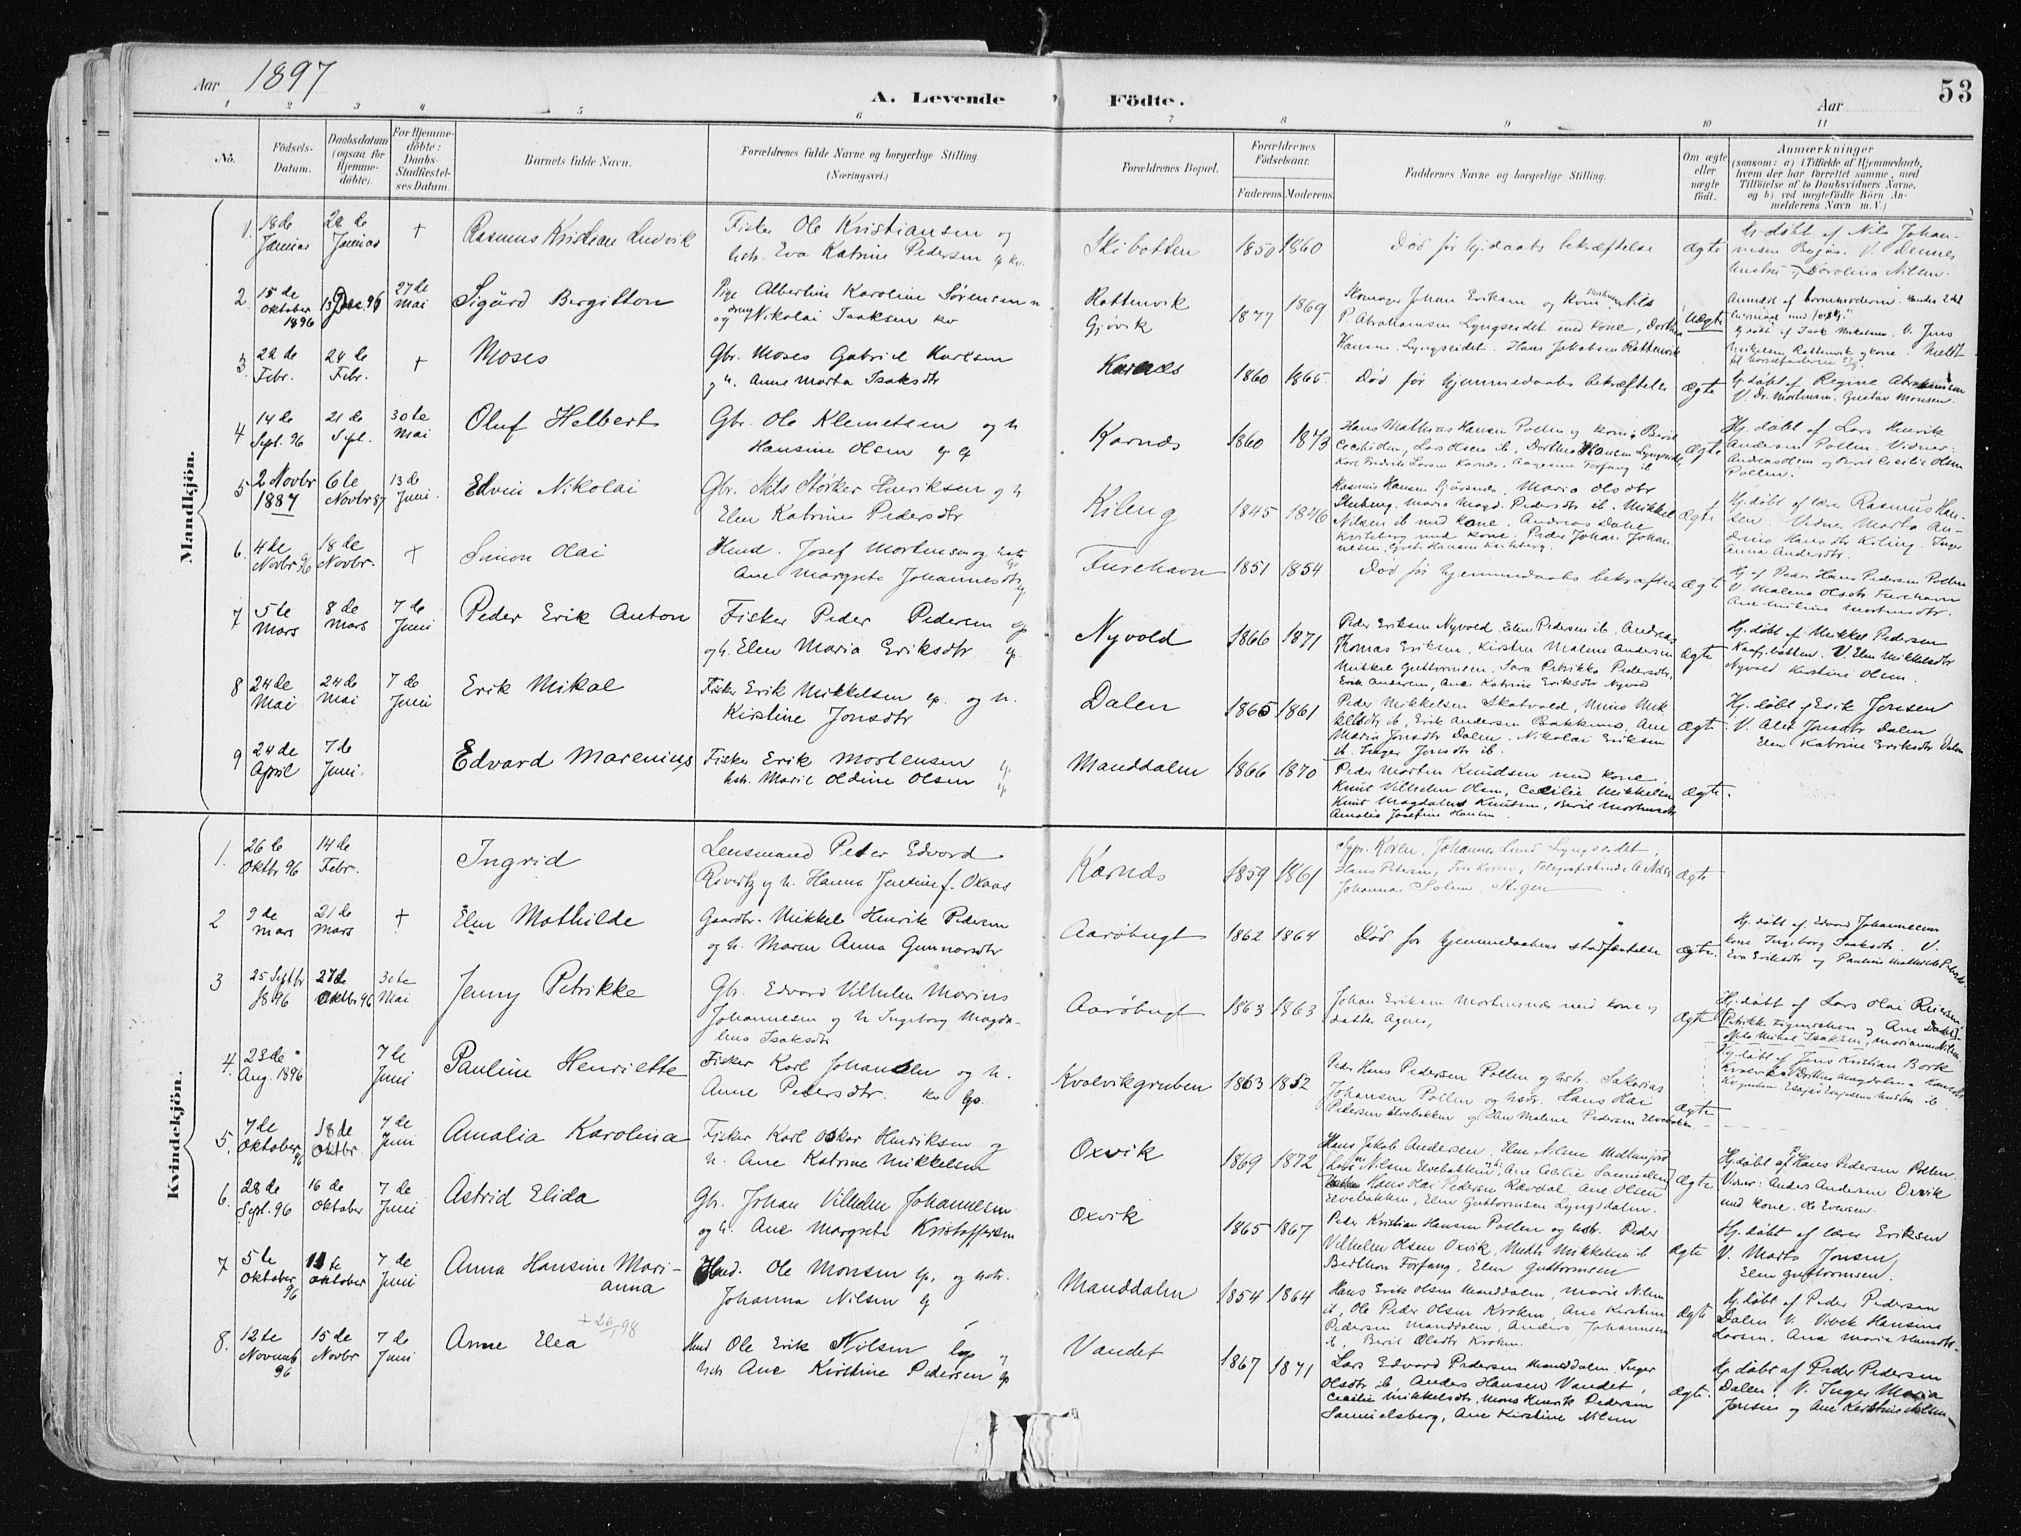 Aar 1897
A. Levende Födte.
Aar
53
1 2 3 4 5 6 7 8 9 10 11
No.
Födsels-Datum.
Daabsdatum (ogsaa for Hjemme-döbte).
For Hjemme-döbte: Daabs-Stadfæstel-ses Datum.
Barnets fulde Navn.
Forældrenes fulde Navne og borgerlige Stilling.
(Næringsvei.)
Forældrenes Bopæl.
Forældrenes Födselsaar.
Faderens. Moderens.
Faddernes Navne og borgerlige Stilling.
Om ægte eller uægte födt.
Anmærkninger
(saasom: a) i Tilfælde af Hjemmedaab,
hvem der har forrettet samme, med
Tilföielse af to Daabsvidners Navne,
og b) ved uægtefödte Börn An-
melderens Navn m. V.)
Mandkjön.
1. 18de Januar 22de Januar + Rasmus Kristian Ludvik
Fisker Ole Kristiansen og
hstr. Eva Katrine Pedersen
Skibotten 1850 1860 Død før hjdaabs bekræftelse Ægte
Hj. døbt af Nils Johan-
2. 15de Oktober 1896 13 Dec. 96 27de Mai Sigurd Bergitton
Pige Albertine Karoline Sørensen
og Nikolai Isaksen
Rottenvik Gjøvik 1877 1869
Johan Eriksen og
P. Abrahamsen Lyngseidet med kone, Dorthea
Hansen Lyngseidet. Hans Jakobsen Rottenvik
Uægte
3. 22de Febr. 24de Febr. + Moses
Gbr. Moses Gabriel Karlsen
og h. Anne Marta Isaksdtr
Karnæs 1860 1865. Død før hjemmedaabs bekræftelse Ægte
Hj. døbt af Regine Abrahamsen
V. Dr. Mortensen. Gustav Monsen.
4 14de Sept. 96 21de Sept. 30te Mai Oluf Helbert
Gbr. Ole Klemetsen og h
Hansine Olsen
Karnæs 1860 1873
Hans Mathias Hansen Pollen og kone, Beril
Ægte
Hj. døbt af Lars Henrik
Andersen Pollen. Vidner:
Andreas Olsen og Beril Cecilie Olsen
Pollen.
5 2 Novbr 1887 6te Novbr 87 13de Juni. Edvin Nikolai
Gbr. Nils Størker Henriksen og h
Elen Katrine Pedersdtr
Kileng 1845 1846
Rasmus Hansen
Maria Olsdtr
Nilsen ib med kone. Andreas Dahl
Kviteberg med kone. Peder Johan Johan-
Ægte
Hj. døbt af lærer Rasmus Han-
sen Vidner Marta An-
6. 4de Novbr 96 18de Novbr. + Simon Olai
Hmd. Josef Mortensen og hstr
Ane Margrete Johannesdtr
Furehavn 1851 1854 Død før hjemmedaabs bekræftelse Ægte
Hj. af Peder Hans Pedersen Pollen
V. Malena Olsdtr Furehavn
7 5te Mars 8de Mars 7de Juni Peder Erik Anton
Fisker Peder Pedersen
og h. Elen Maria Eriksdtr
Nyvold 1866 1871
Peder Eriksen Nyvold, Elen Pedersen ib, Andreas
Tomas Eriksen, Kirsten Malene Andersen
Mikkel Guttormsen, Sara Petrikke Pedersdtr,
Erik Andersen, Ane Katrine Eriksdtr Nyvold
Ægte
Hj. døbt af Mikkel Pedersen
V. Elen Mikkelsdtr
Nyvold Kirstine Olsen.
8 24de Mai 24de Mai 7de Juni Erik Mikal
Fisker Erik Mikkelsen og h.
Kirstine Jonsdtr
Dalen 1865 1861
Peder Mikkelsen Skatvold,
Maria Jonsdtr Dalen. Nikolai Eriksen
ib. Inger Jonsdtr ib.
Ægte
Hj. døbt af Erik Jonsen
V. Alet Jonsdtr Dalen
Elen Katrine Eriksdtr Dalen
9 24de April 7de Juni. Edvard Marenius
Fisker Erik Mortensen
hstr. Marie Oldine Olsen
Manddalen 1866 1870
Peder Morten Knudsen med kone,
Knut Vilhelm Olsen, Cecilie Mikkelsen
Knut Magdalus Knutsen, Beril Mortensdtr
Amalia Josefine Hansen.
Ægte.
Kvindekjön.
1. 26te Oktbr 96 14de Febr. Ingrid
Lensmand Peder Edvard
Rivertz og h. Hanna Jensine f. Oxaas
Karnæs 1859 1861
Johannes Lund Lyngseidet,
Johanna Solem, Stigen
Ægte
2 9de Mars 21de Mars + Elen Mathilde
Gaardbr. Mikkel Henrik Pedersen
og h. Maren Anna Gunnarsdtr
Aarøbugt 1862 1864 Død før hjemmedaabens stadfæstelse Ægte.
Hj. døbt af Edvard Johannesens
kone Ingeborg Isaksdtr. V.
Eva Eriksdtr og Pauline Mathilde
3 25 Septbr 1896 27de Oktbr 96 30te Mai Jenny Petrikke
Gbr. Edvard Vilhelm Marius
Johannesen og h Ingeborg Magda-
lena Isaksdtr
Aarøbugt 1863 1863
Johan Eriksen Mortensnæs med kone og
datter Agnes,
Ægte
Hj. døbt af Lars Olai Reiersen
4. 23de Aug. 1896 7de Juni Pauline Henriette
Fisker Karl Johansen og h.
Anne Pedersdtr.
Kvalvikgruben 1863 1852
Peder Hans Pedersen Pollen og hstr. Sakarias
Johansen Pollen og hstr. Hans Olai
Pedersen Elvebakken og Elen Malene Pedersen Elvebakken
Ægte
Hj. døbt af Jens Kristian Bork
5. 7de Oktober 96 18de Oktbr 7de Juni Amalia Karolina
Fisker Karl Oskar Henriksen og
h. Ane Katrine Mikkelsen
Oxvik 1869 1872
Hans Jakob Andersen.
Hans Olai Pedersen Ravdal, Ane Olsen
Elvebakken, Elen Guttormsen Lyngsdalen.
Ægte
Hj. døbt af Hans Pedersen Pollen.
Vidner: Anders Andersen Oxvik
med kone. Ole Evensen.
6. 28de Sept. 96 16de Oktober 7de Juni Astrid Elida
Gbr. Johan Vilhelm Johannesen
og h. Ane Margrete Kristoffersen
Oxvik 1865 1867
Peder Kristian Hansen Pollen og hstr. Peder
Vilhelm Olsen Oxvik, Meth Mikkelsen ib
Berthon Forfang, Elen Guttormsen
Ægte
Hj. døbt af lærer Eriksen
V. Marta Jonsen,
Elen Guttormsen.
7 5te Oktober 96 11te Oktober 7de Juni Anna Hansine Mari-
anna
Hmd. Ole Monsen og hstr.
Johanna Nilsen
Manddalen 1854 1864
Hans Erik Olsen Manddalen, Marie Nilsen
ib, Ole Peder Olsen Kroken, Ane Kirstine
Pedersen Manddalen, Anders Johannesen
ib, Beril Olsdtr Kroken.
Ægte
Hj. døbt af Peder Pedersen
Dalen V. Vivek Hansine
Larsen, Ane Maria Hansdtr.
8. 12te Novemb 96 15de Novbr 7de Juni Anne Elea
+ 26/1 98
Hmd Ole Erik Nilsen og
hstr Ane Kirstine Pedersen
Vandet 1867 1871
Lars Edvard Pedersen Manddalen Inger
Olsdtr ib Anders Hansen Vandet,
Cecilie Mikkelsdtr, Mons Henrik Pedersen
Samuelsberg, Ane Kirstine Nilsen
Ægte.
Hj. døbt af Peder Pedersen
Dalen. V. Inger Maria
Jonsen og Ane Kerstine Nilsen